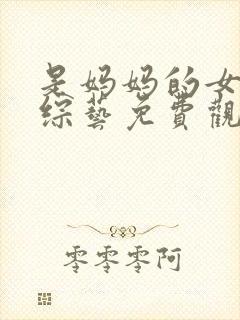 是妈妈的女
综艺免費觀
零零零阿